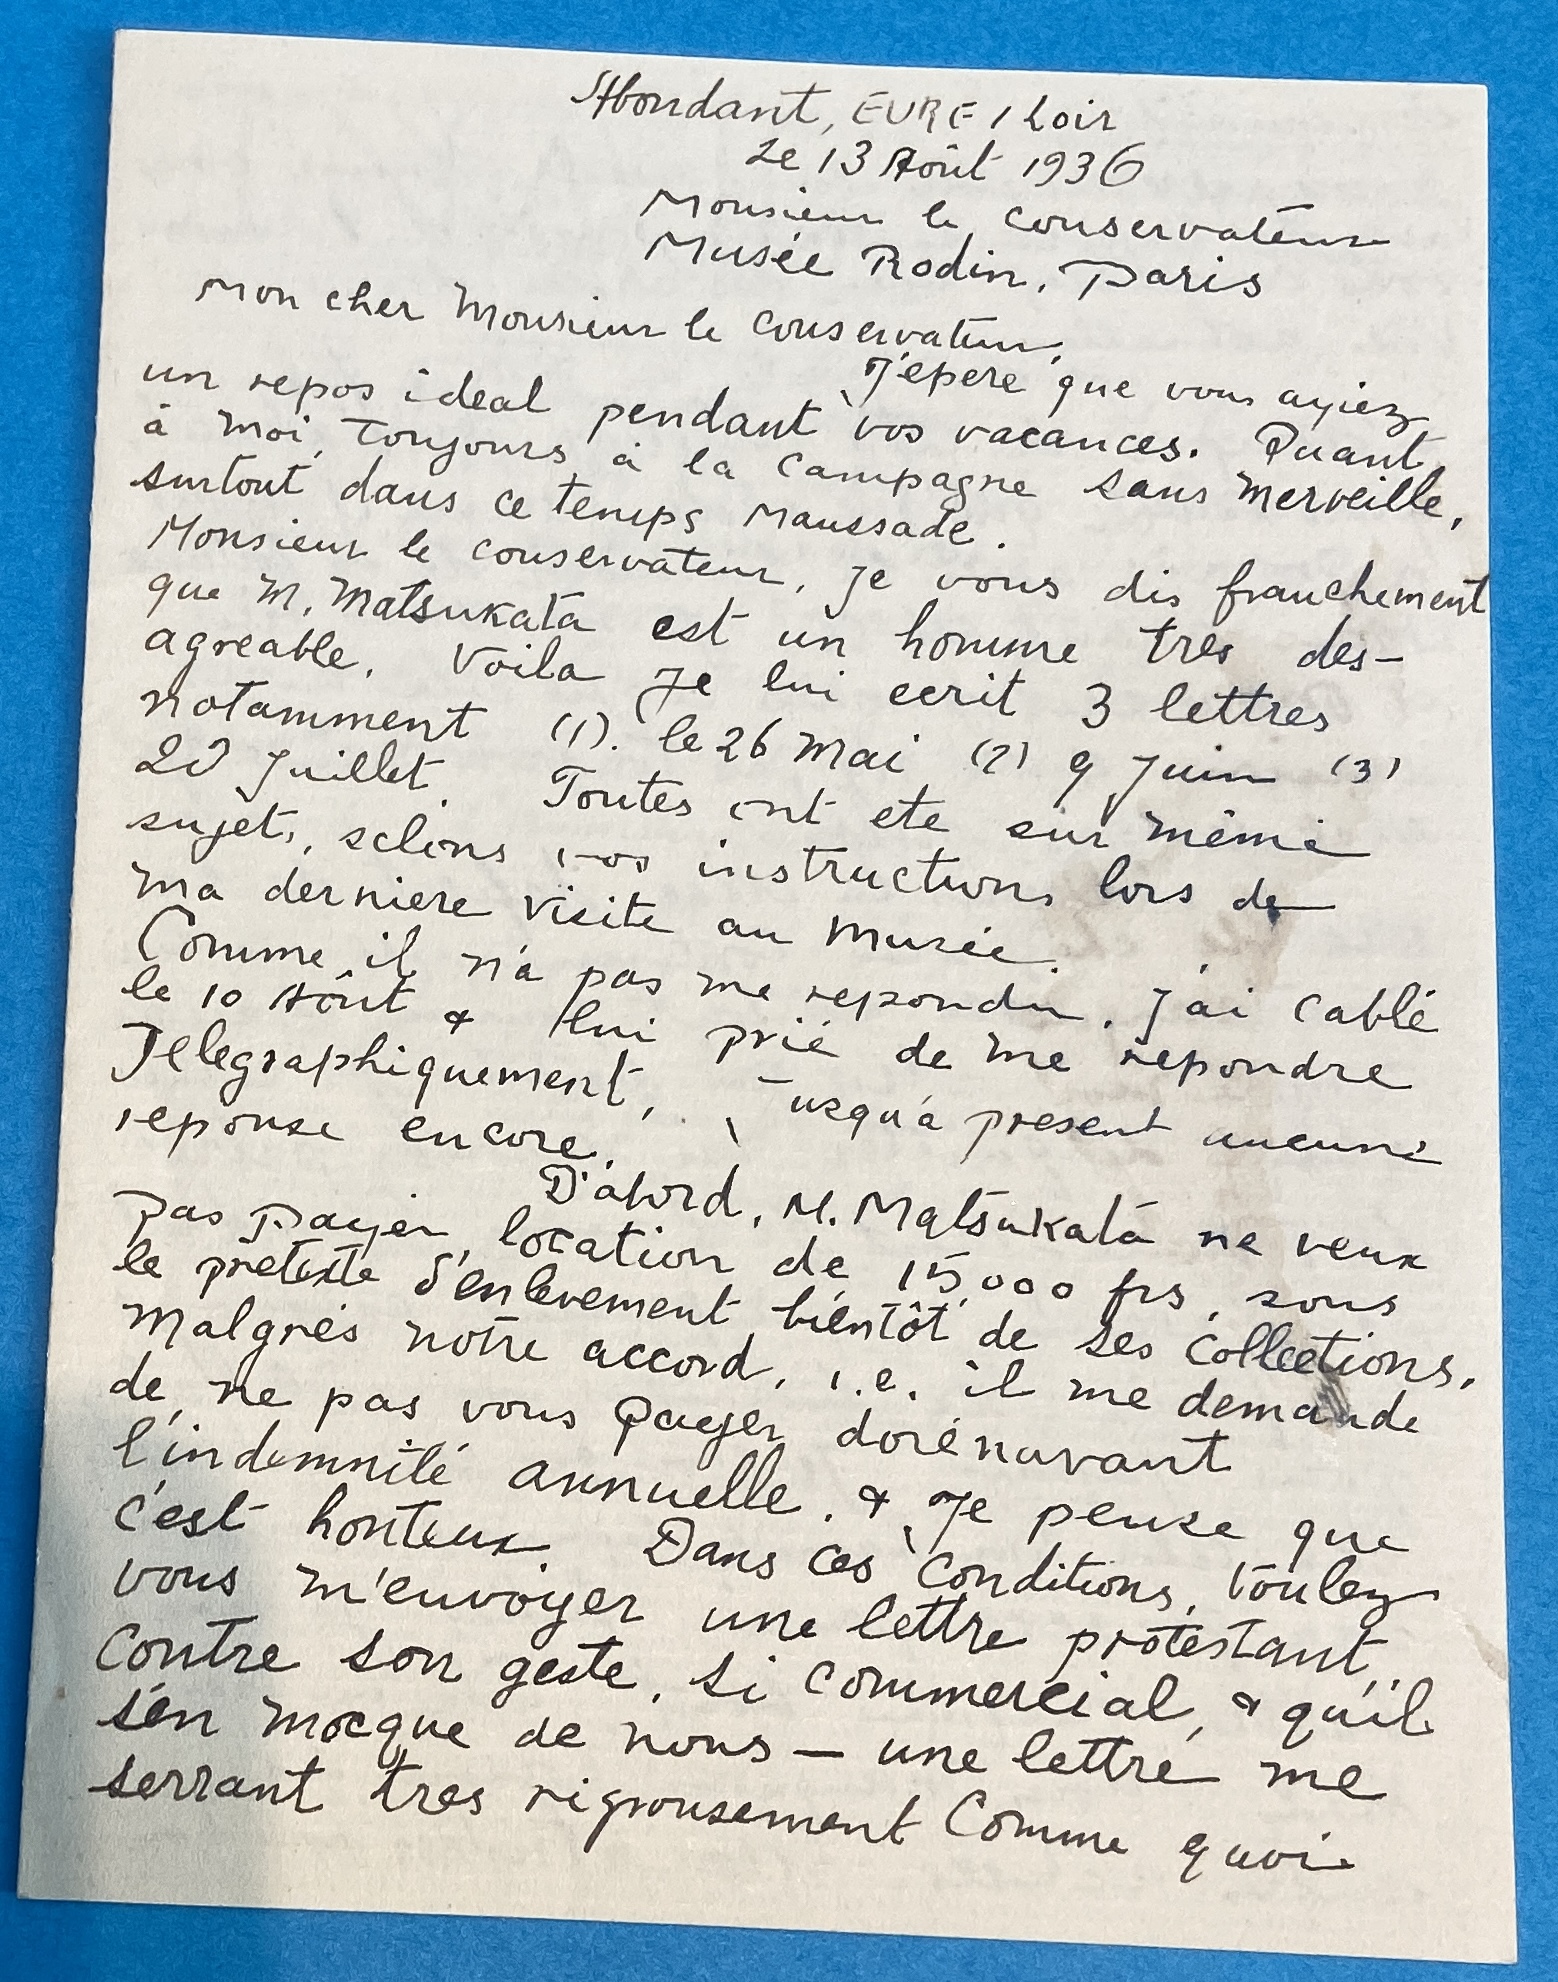 Abondant, EURE / Loir
Le 13 Août 1936
Monsieur le Conservateur
Musée Rodin, Paris
Mon cher Monsieur le Conservateur,
J'epere que vous ayiez
un repos ideal pendant vos vacances. Quant
à moi, toujours à la Campagne sans merveille,
surtout dans ce temps maussade.
Monsieur le conservateur, je vous dis franchement
que M. Matsukata est un homme tres des-
agreable. Voila je lui ecrit 3 lettres
notamment (1). le 26 Mai (2) 9 Juin (3)
Juillet. Toutes ont ete sur même
sujet, selons vos instructions lors de
ma derniere visite au Musée.
Comme il n'a pas me repondu, j'ai cablé
le 10 Août & lui prié de me repondre
Telegraphiquement, Jusqu'à present aucune
reponse encore.
D'abord, M. Matsukata ne veux
pas payer location de 15,000 frs, sous
le pretexte d'enlevement bientôt de ses Collections,
Malgrés notre accord, i.e. il me demande
de ne pas vous payer dorénavant
l'indemnité annuelle. & Je pense que
c'est honteux. Dans ces conditions, voulez
vous m'envoyer une lettre protestant
Contre son geste, si commercial, & qu'il
s'en mocque de nous — une lettre me
serrant tres rigrousement Comme quoi